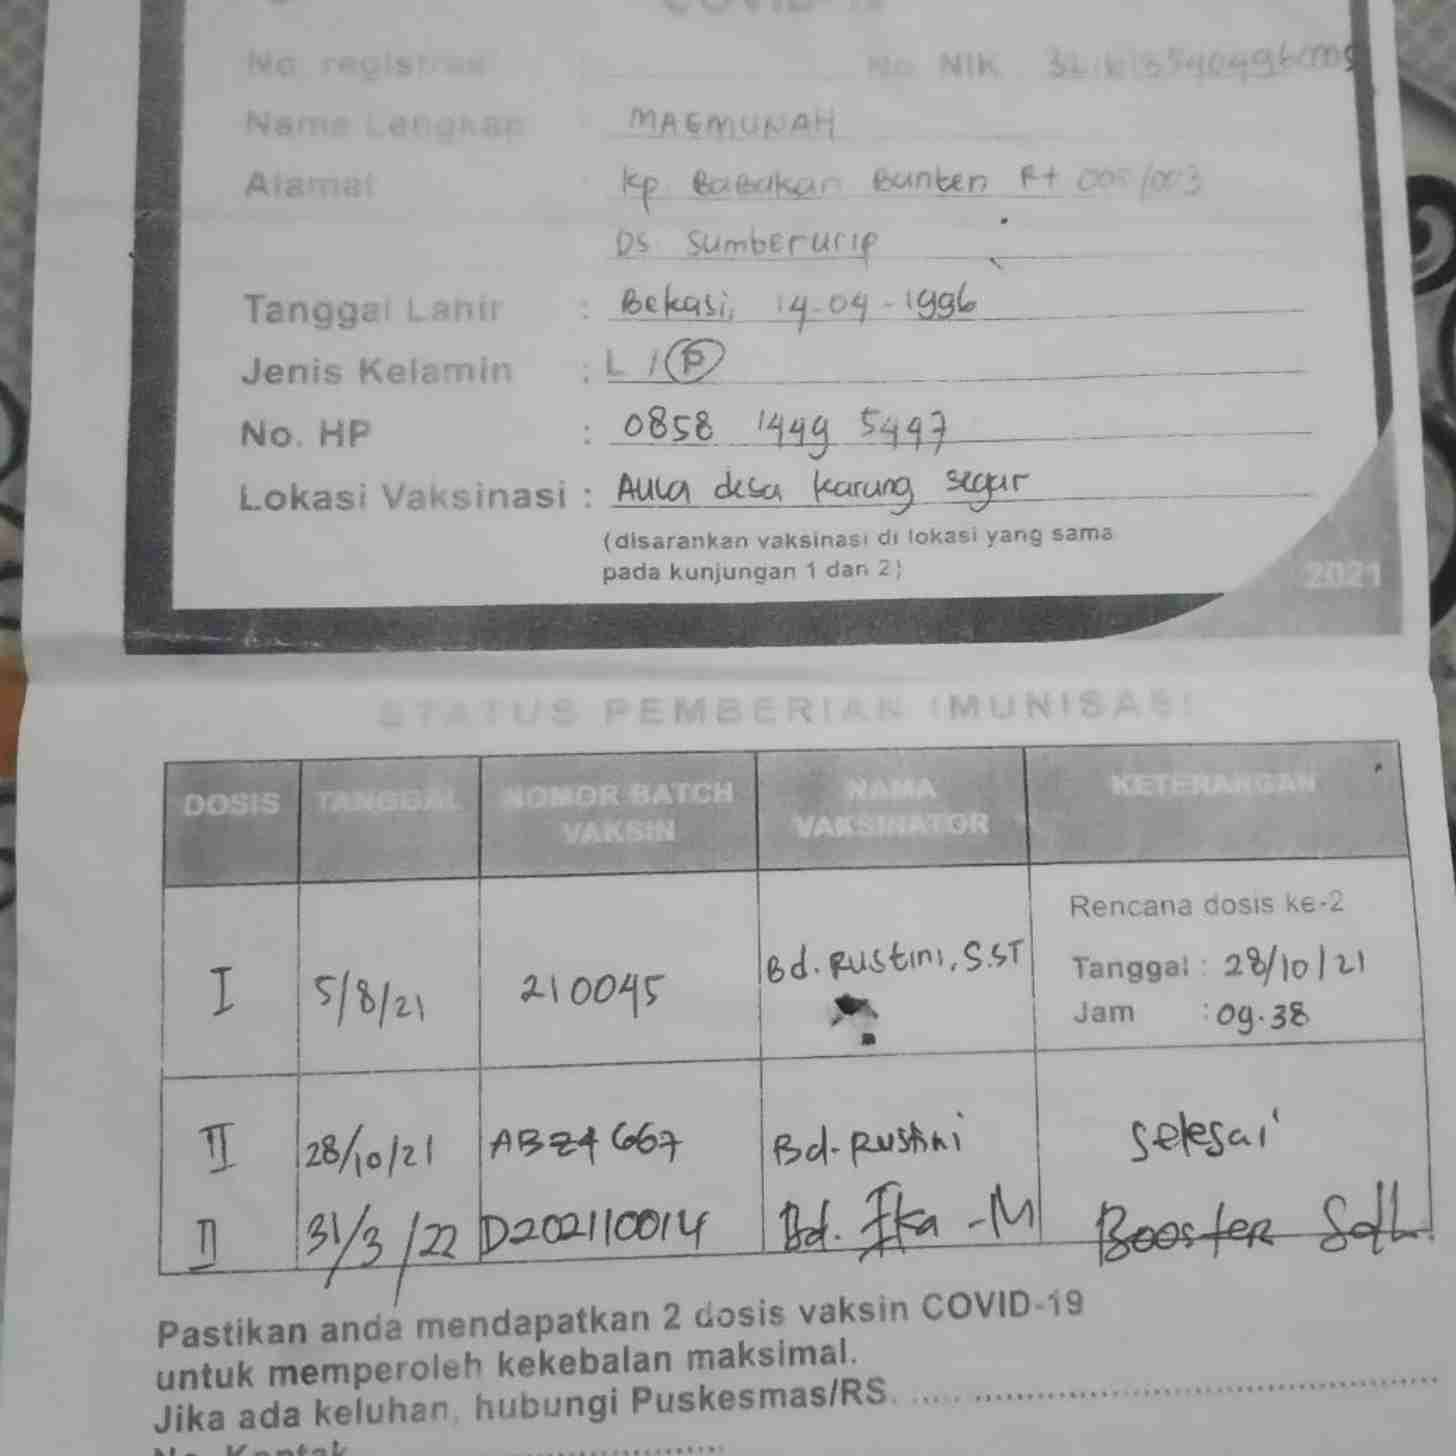 COVID-19
No. registrasi
No NIK
Nama Lengkap : MAEMUNAH
Alamat : Kp Babakan Banten Rt 005/003
Ds. Sumberurip
Tanggal Lahir : Bekasi, 14-04-1996
Jenis Kelamin : L / P
No. HP : 0858 1449 5497
Lokasi Vaksinasi : Aula desa karang segar
(disarankan vaksinasi di lokasi yang sama
pada kunjungan 1 dan 2)
2021
STATUS PEMBERIAN IMUNISASI
DOSIS TANGGAL NOMOR BATCH VAKSIN NAMA VAKSINATOR KETERANGAN
Rencana dosis ke-2
I 5/8/21 210045 Bd. Rustini, S.ST Tanggal : 28/10/21
Jam : 09.38
II 28/10/21 ABZ4667 Bd. Rustini Selesai
II 31/3/22 D202110014 Bd. Ika -M Booster Sdh
Pastikan anda mendapatkan 2 dosis vaksin COVID-19
untuk memperoleh kekebalan maksimal.
Jika ada keluhan, hubungi Puskesmas/RS. ..... ........................................
No. Kontak ........................